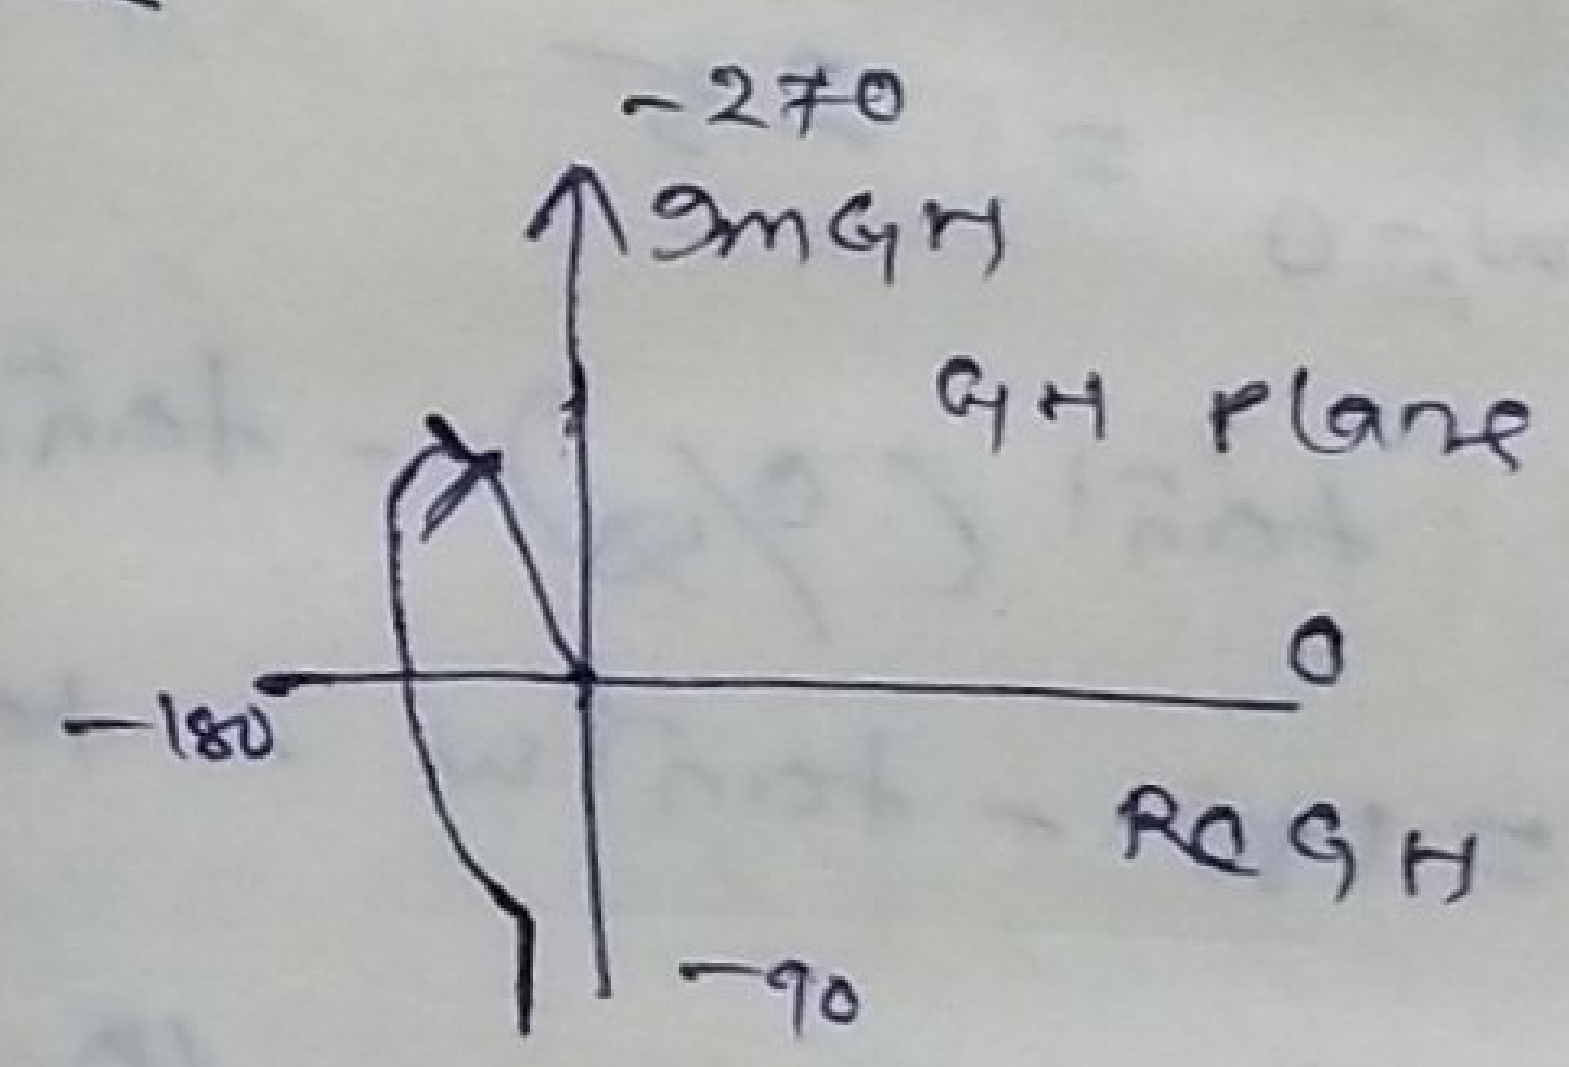 -270
ImGH
GH Plane
0
-180
Re GH
-90